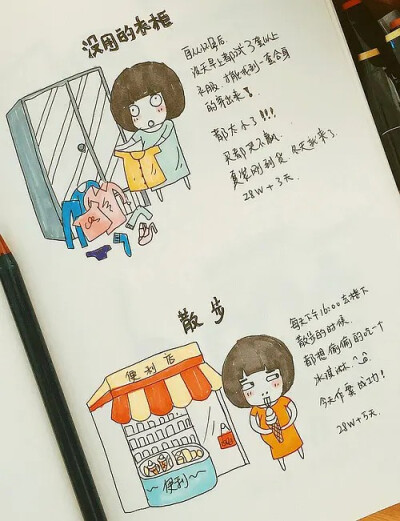 没用的衣柜
每天早上都试了3套以上
衣服,才能找到一套合身
的穿出来!
都太小了!!!
买都买不赢
夏装刚到货,冬天就来了.
28W+3天
散步
便利店
便利
每天下午16:00去楼下
散步的时候
都想偷偷的吃一个
冰淇淋
今天作案成功!
28W+5天